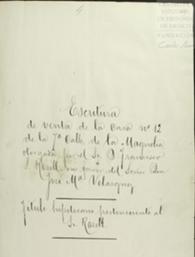 4
Escritura
de venta de la Casa nº 12
de la 7ª Calle de la Magnolia
otorgada por el Sr. D. Francisco
Rosell en favor del Señor Don
José Mª Velasquez
Título supletorio perteneciente al
Sr. Rosell.